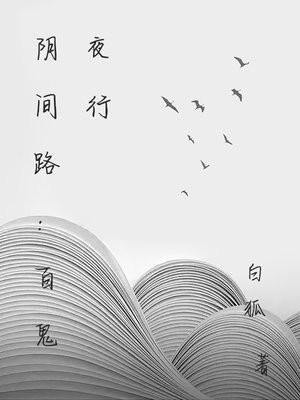 阴间路：百鬼
夜行
白狐 著